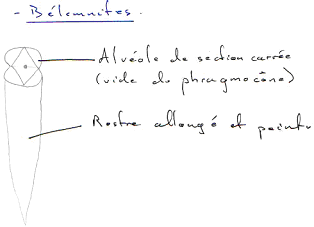 - Bélemnites.
Alvéole de section carrée
(vide du phragmocône)
Rostre allongé et pointu